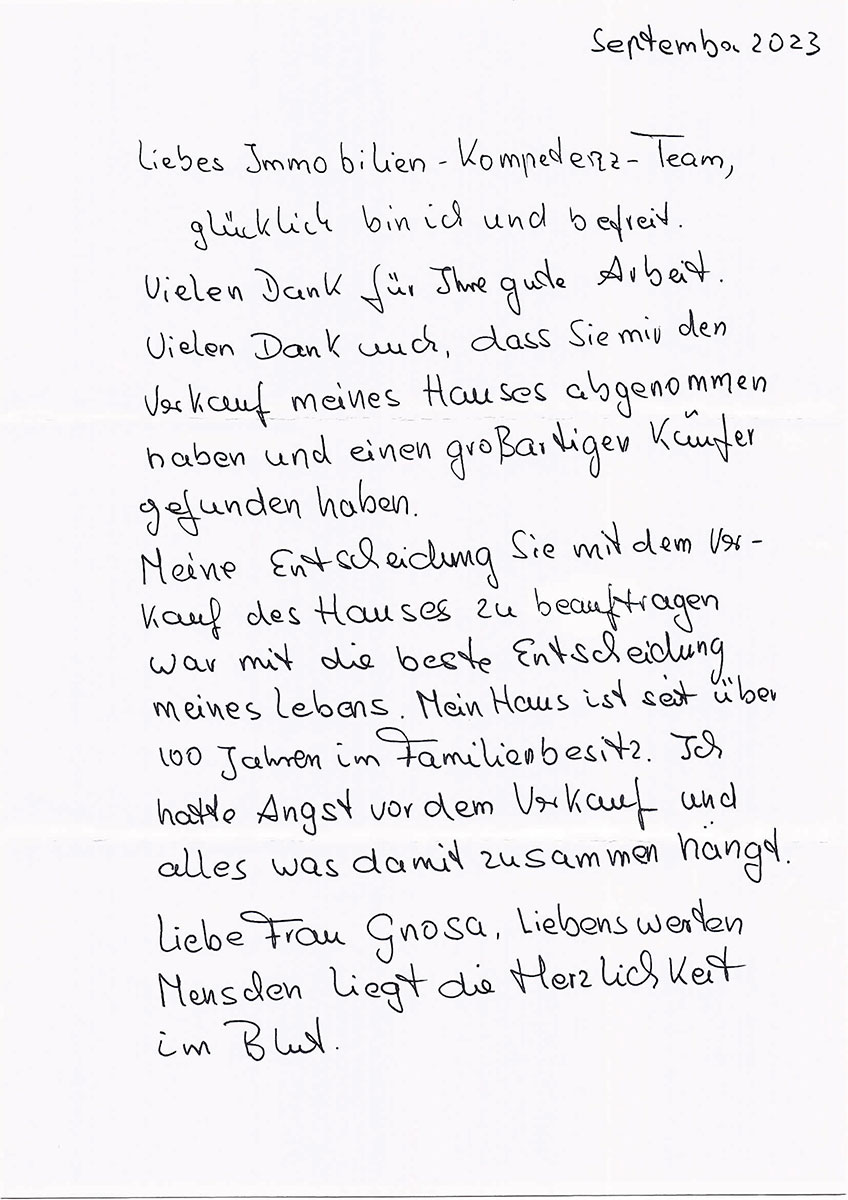 September 2023
Liebes Immobilien-Kompedenz-Team,
glücklich bin ich und befreit.
Vielen Dank für Ihre gute Arbeit.
Vielen Dank auch, dass Sie mir den
Verkauf meines Hauses abgenommen
haben und einen großartigen Käufer
gefunden haben.
Meine Entscheidung Sie mit dem Ver-
kauf des Hauses zu beauftragen
war mit die beste Entscheidung
meines Lebens. Mein Haus ist seit über
100 Jahren im Familienbesitz. Ich
hatte Angst vor dem Verkauf und
alles was damit zusammen hängt.
Liebe Frau Gnosa, Liebenswerten
Menschen liegt die Herzlichkeit
im Blut.